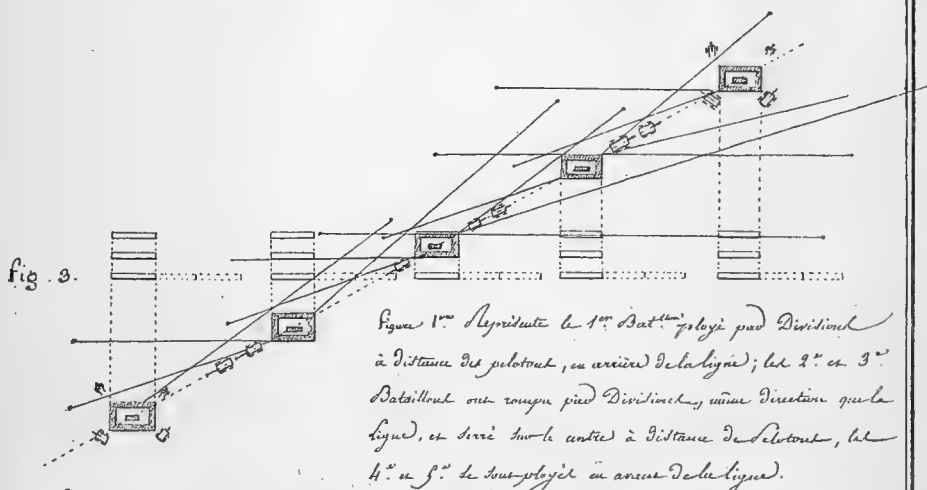 fig. 3.
Figure 1re Représente le 1er Bat.llon ployé par Divisions
à distance des pelotons, en arrière de la ligne ; les 2e et 3e
Bataillons ont rompu par Divisions, même direction que la
ligne, et serré sur le centre à distance de Pelotons, les
4e et 5e se sont ployés en avant de la ligne.